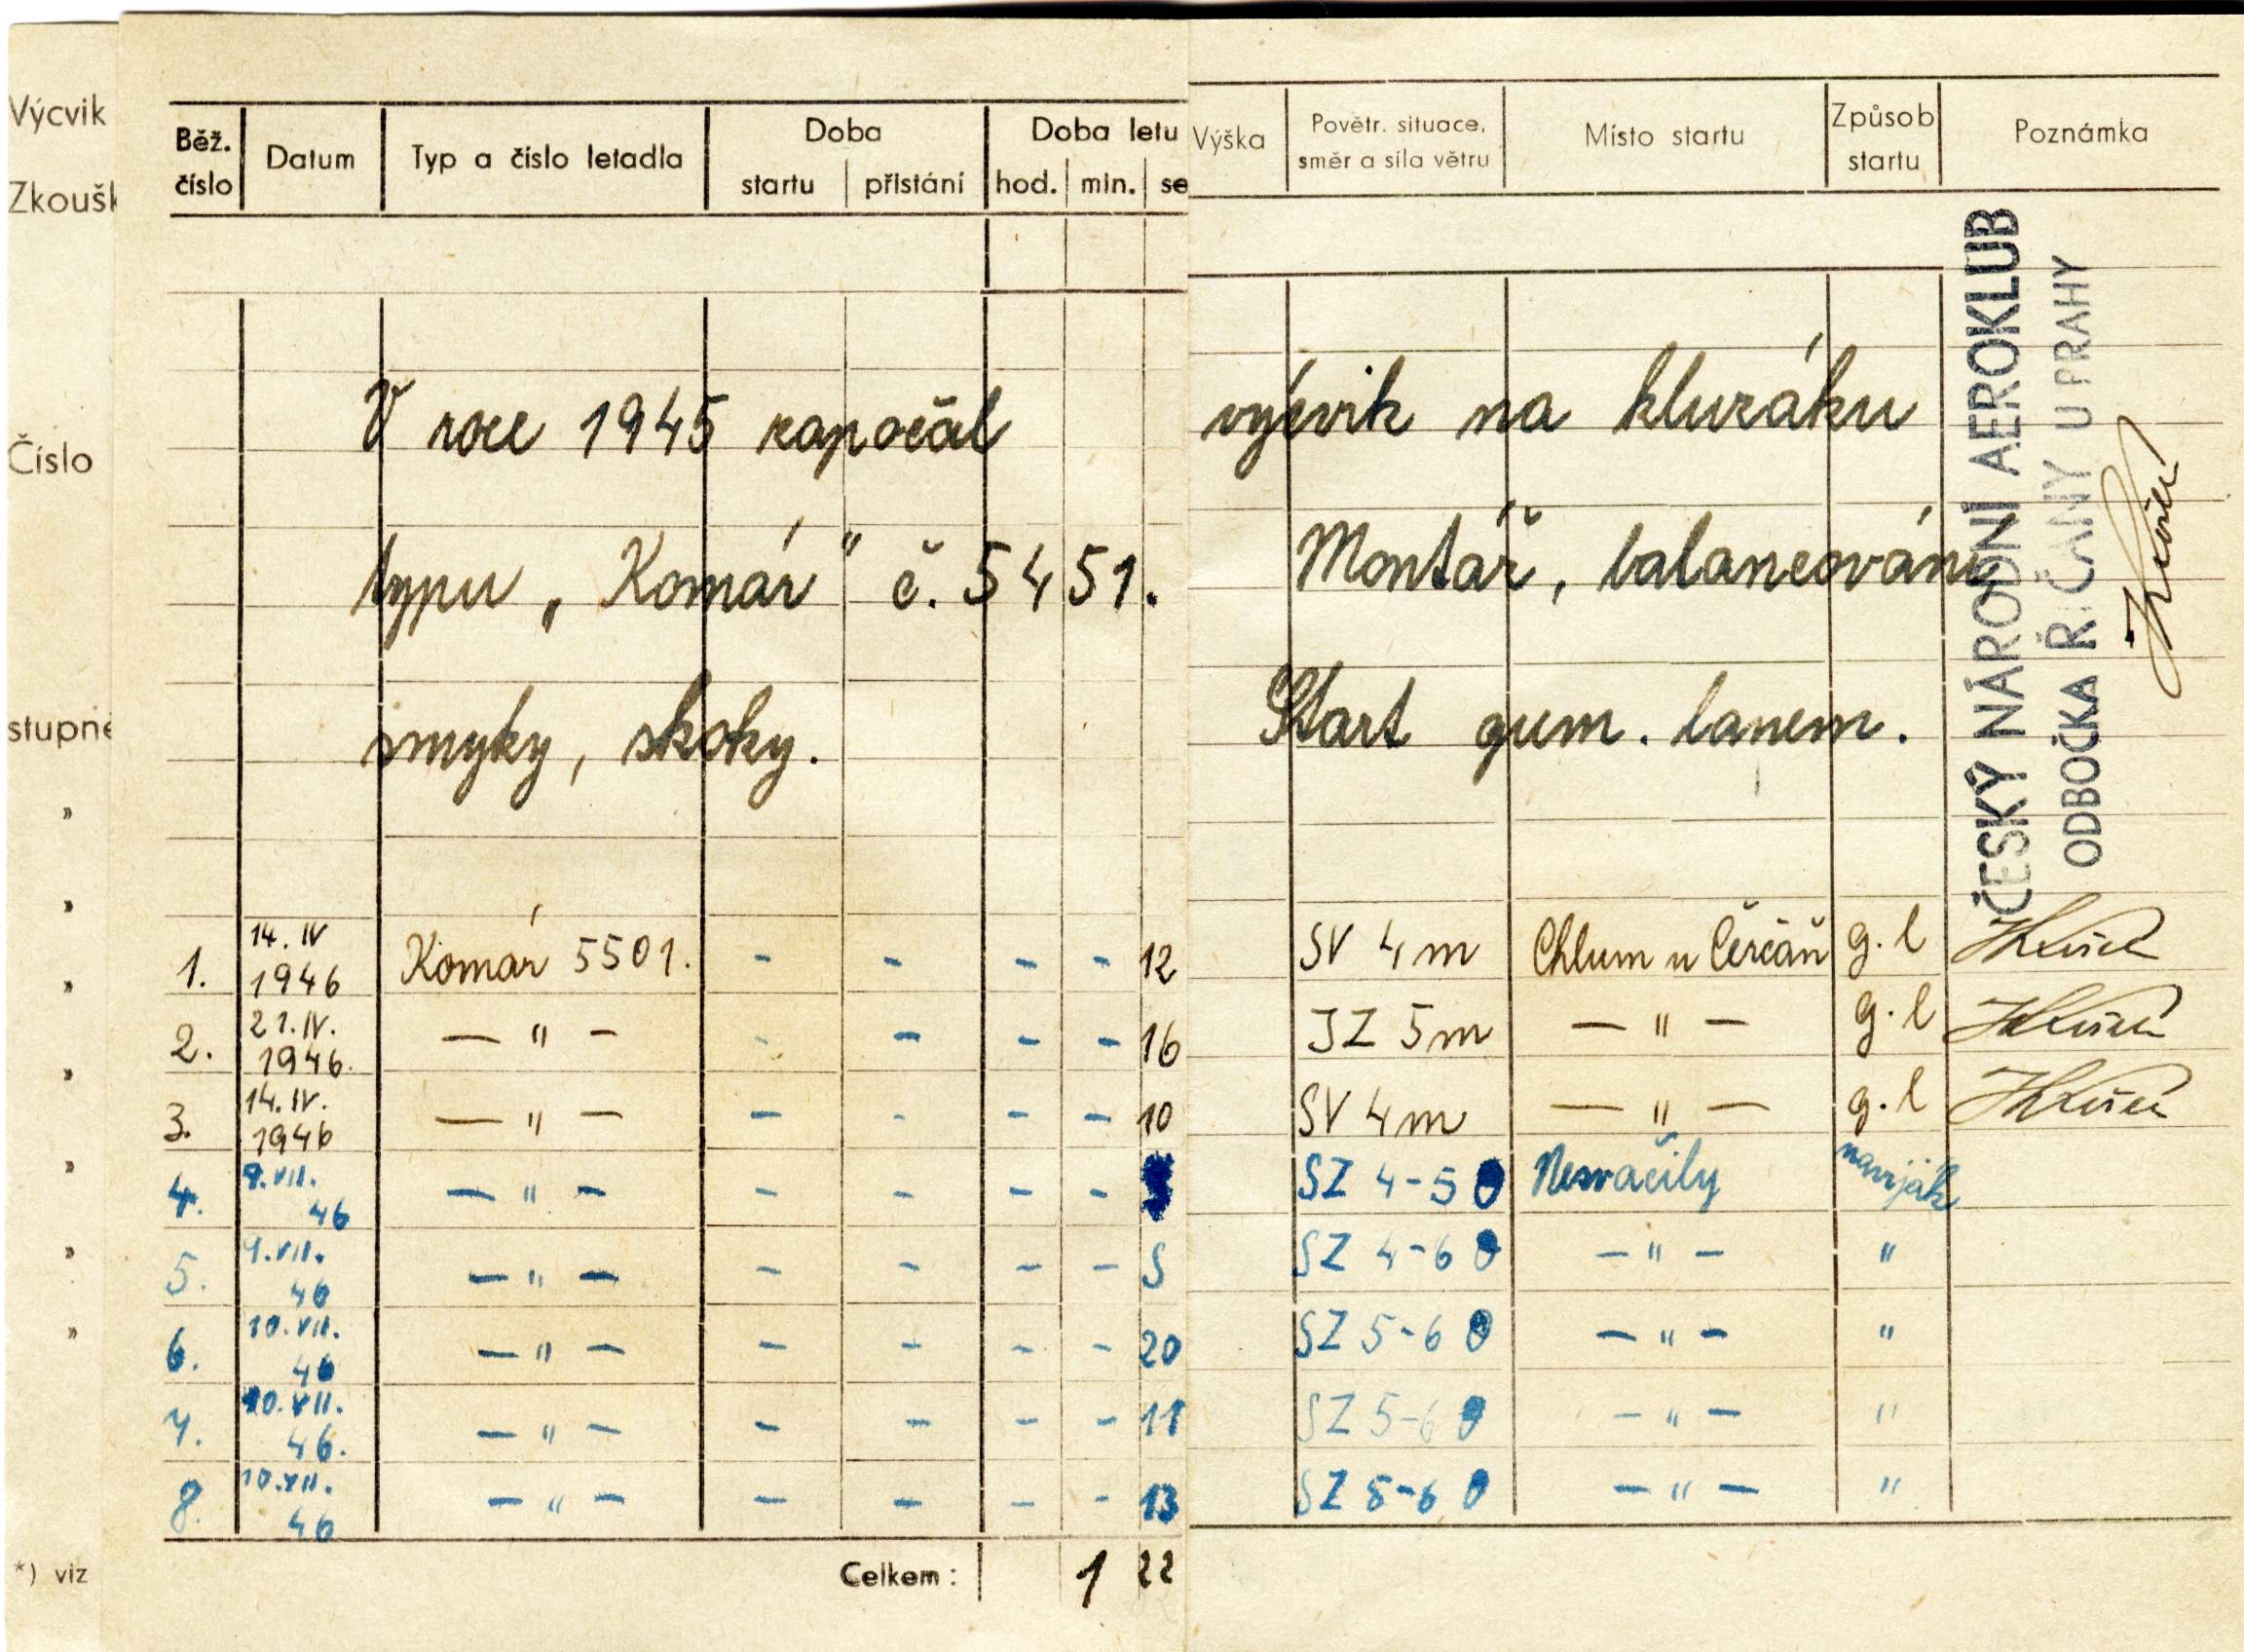 Výcvik
Zkoušk
Číslo
stupně
"
"
"
"
"
"
"
*) viz
Běž. číslo Datum Typ a číslo letadla Doba startu přistání Doba letu hod. min. se Výška Povětr. situace, směr a síla větru Místo startu Způsob startu Poznámka
V roce 1945 započal výcvik na kluzáku
typu „Komár" č. 5451. Montáž, balancování
smyky, skoky. Start gum. lanem.
ČESKÝ NÁRODNÍ AEROKLUB
ODBOČKA ŘÍČANY U PRAHY
1. 14. IV 1946 Komár 5501. - - - - 12 SV 4 m Chlum u Čerčan g. l
2. 21. IV. 1946. — " — - - - - 16 JZ 5 m — " — g. l
3. 14. IV. 1946 — " — - - - - 10 SV 4 m — " — g. l
4. 9. VII. 46 — " — - - - - SZ 4-5 Nesvačily naviják
5. 9. VII. 46 — " — - - - - S SZ 4-6 — " — "
6. 10. VII. 46 — " — - - - - 20 SZ 5-6 — " — "
7. 10. VII. 46. — " — - - - - 11 SZ 5-6 — " — "
8. 10. VII. 46 — " — - - - - 13 SZ 5-6 — " — "
Celkem: 1 22